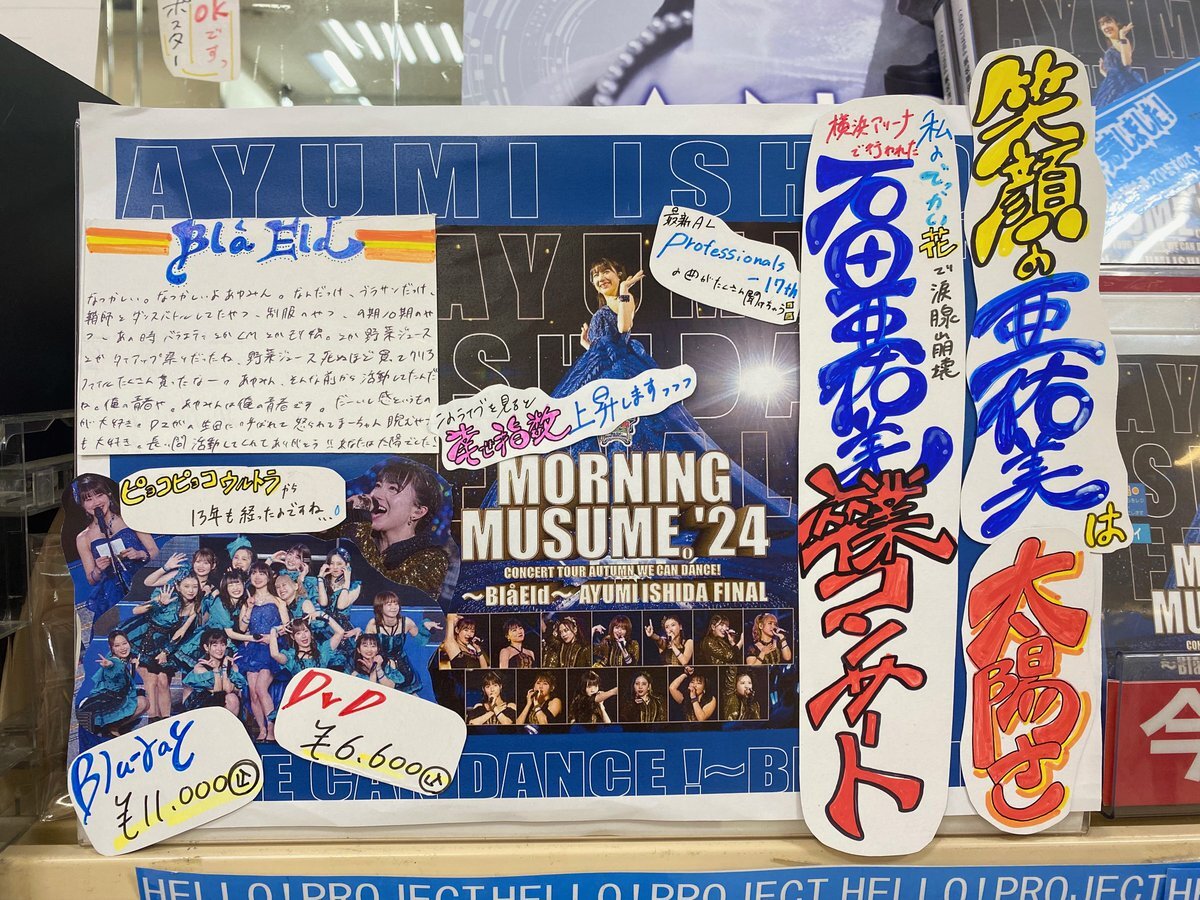 ポスター
OKですっ
AYUMI ISH
BlåEld
なつかしい。なつかしいよあゆみん。なんだっけ、ブラサンだっけ、
鞘師とダンスバトルしてたやつ、制服のやつ、9期10期のや
つ、あの時バラエティとかCMとかも出て
とか野菜ジュース
とかタイアップ祭りだったね、野菜ジュース死ぬほど買ってクリア
ファイルたくさん貰ったなー。あゆみん、そんな前から活動してたんだ
ね。俺の青春や。あゆみんは俺の青春です。だーいし感というもの
が大好き。
も大好き。長い間活動してくれてありがとう!!あなたは太陽でした!
ピョコピョコウルトラから
13年も経ったのですね…。
Blu-ray
¥11.000止
DVD
¥6.600止
最新AL
Professionals
-17th
の曲がたくさん聞けちゃう
このライブを見ると
幸せ指数上昇しますっっっ
MORNING
MUSUME。'24
CONCERT TOUR AUTUMN WE CAN DANCE!
～BlåEld～ AYUMI ISHIDA FINAL
E CAN DANCE!～Bl
横浜アリーナ
で行われた
私のでっかい花で涙腺崩壊
石田亜佑美
卒業コンサート
笑顔の
亜佑美は
太陽さ
しました!
MORNI
MUSU
今
HELLO!PROJECT HELLO!PROJECT HELLO!PROJECT